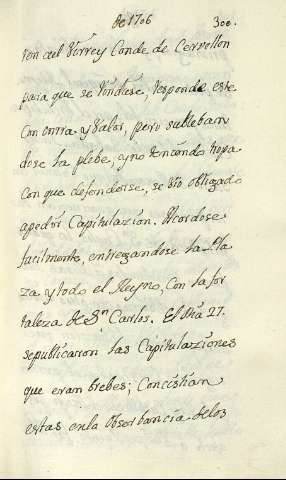 de 1706 300.
ron al Virrey Conde de Cervellon
para que se rindiese, responde este
con onrra, y Valor, pero subleban
dose la plebe, y no teniendo tropa
con que defenderse, se vio obligado
apedir Capitulazion. Acordose
facilmente, entregandose la Pla
za y todo el Reyno, con la for
taleza de Sn. Carlos. El dia 27.
sepublicaron las Capitulaziones
que eran brebes; Concistian
estas en la Obserbancia delos